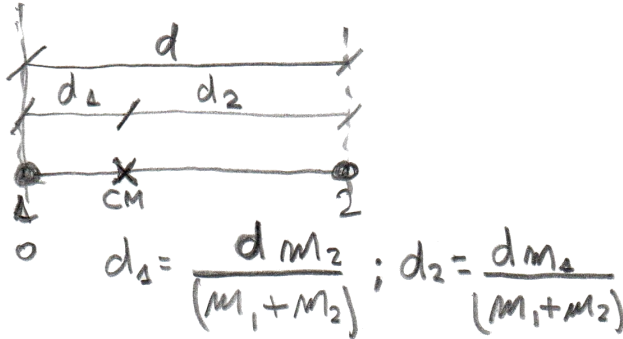 d
d₁ d₂
1 CM 2
0
d₁ = d m₂ / (m₁ + m₂) ; d₂ = d m₁ / (m₁ + m₂)